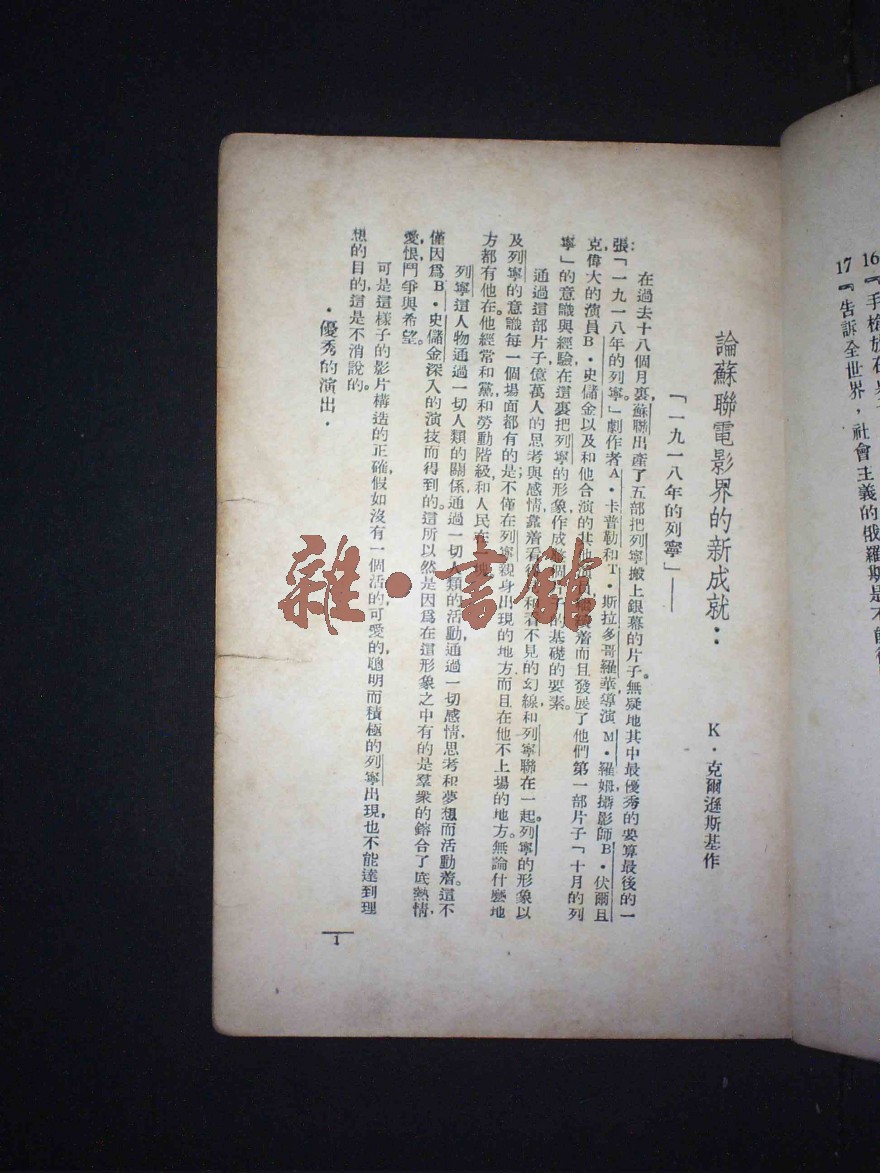 16『手槍放在
17『告訴全世界，社會主義的俄羅斯是不能
論蘇聯電影界的新成就：
「一九一八年的列寧」——
K·克爾遜斯基作
在過去十八個月裏，蘇聯出產了五部把列寧搬上銀幕的片子。無疑地其中最優秀的要算最後的一
張：「一九一八年的列寧。」劇作者A·卡普勒和T·斯拉多哥羅華，導演M·羅姆，攝影師B·伏爾且
克，偉大的演員B·史儲金以及和他合演的其他演員，繼續着而且發展了他們第一部片子「十月的列
寧」的意識與經驗，在這裏把列寧的形象作成整個片子的基礎的要素。
通過這部片子，億萬人的思考與感情，靠着看得見和看不見的幻線和列寧聯在一起。列寧的形象以
及列寧的意識每一個場面都有的是，不僅在列寧親身出現的地方，而且在他不上場的地方。無論什麼地
方都有他在，他經常和黨和勞動階級和人民在一塊。
列寧這人物通過一切人類的關係，通過一切人類的活動，通過一切感情思考和夢想而活動着。這不
僅因爲B·史儲金深入的演技而得到的。這所以然是因爲在這形象之中有的是羣衆的鎔合了底熱情，
愛恨，鬥爭與希望。
可是這樣子的影片構造的正確，假如沒有一個活的，可愛的，聰明而積極的列寧出現，也不能達到理
想的目的，這是不消說的。
·優秀的演出·
1
雜·書館